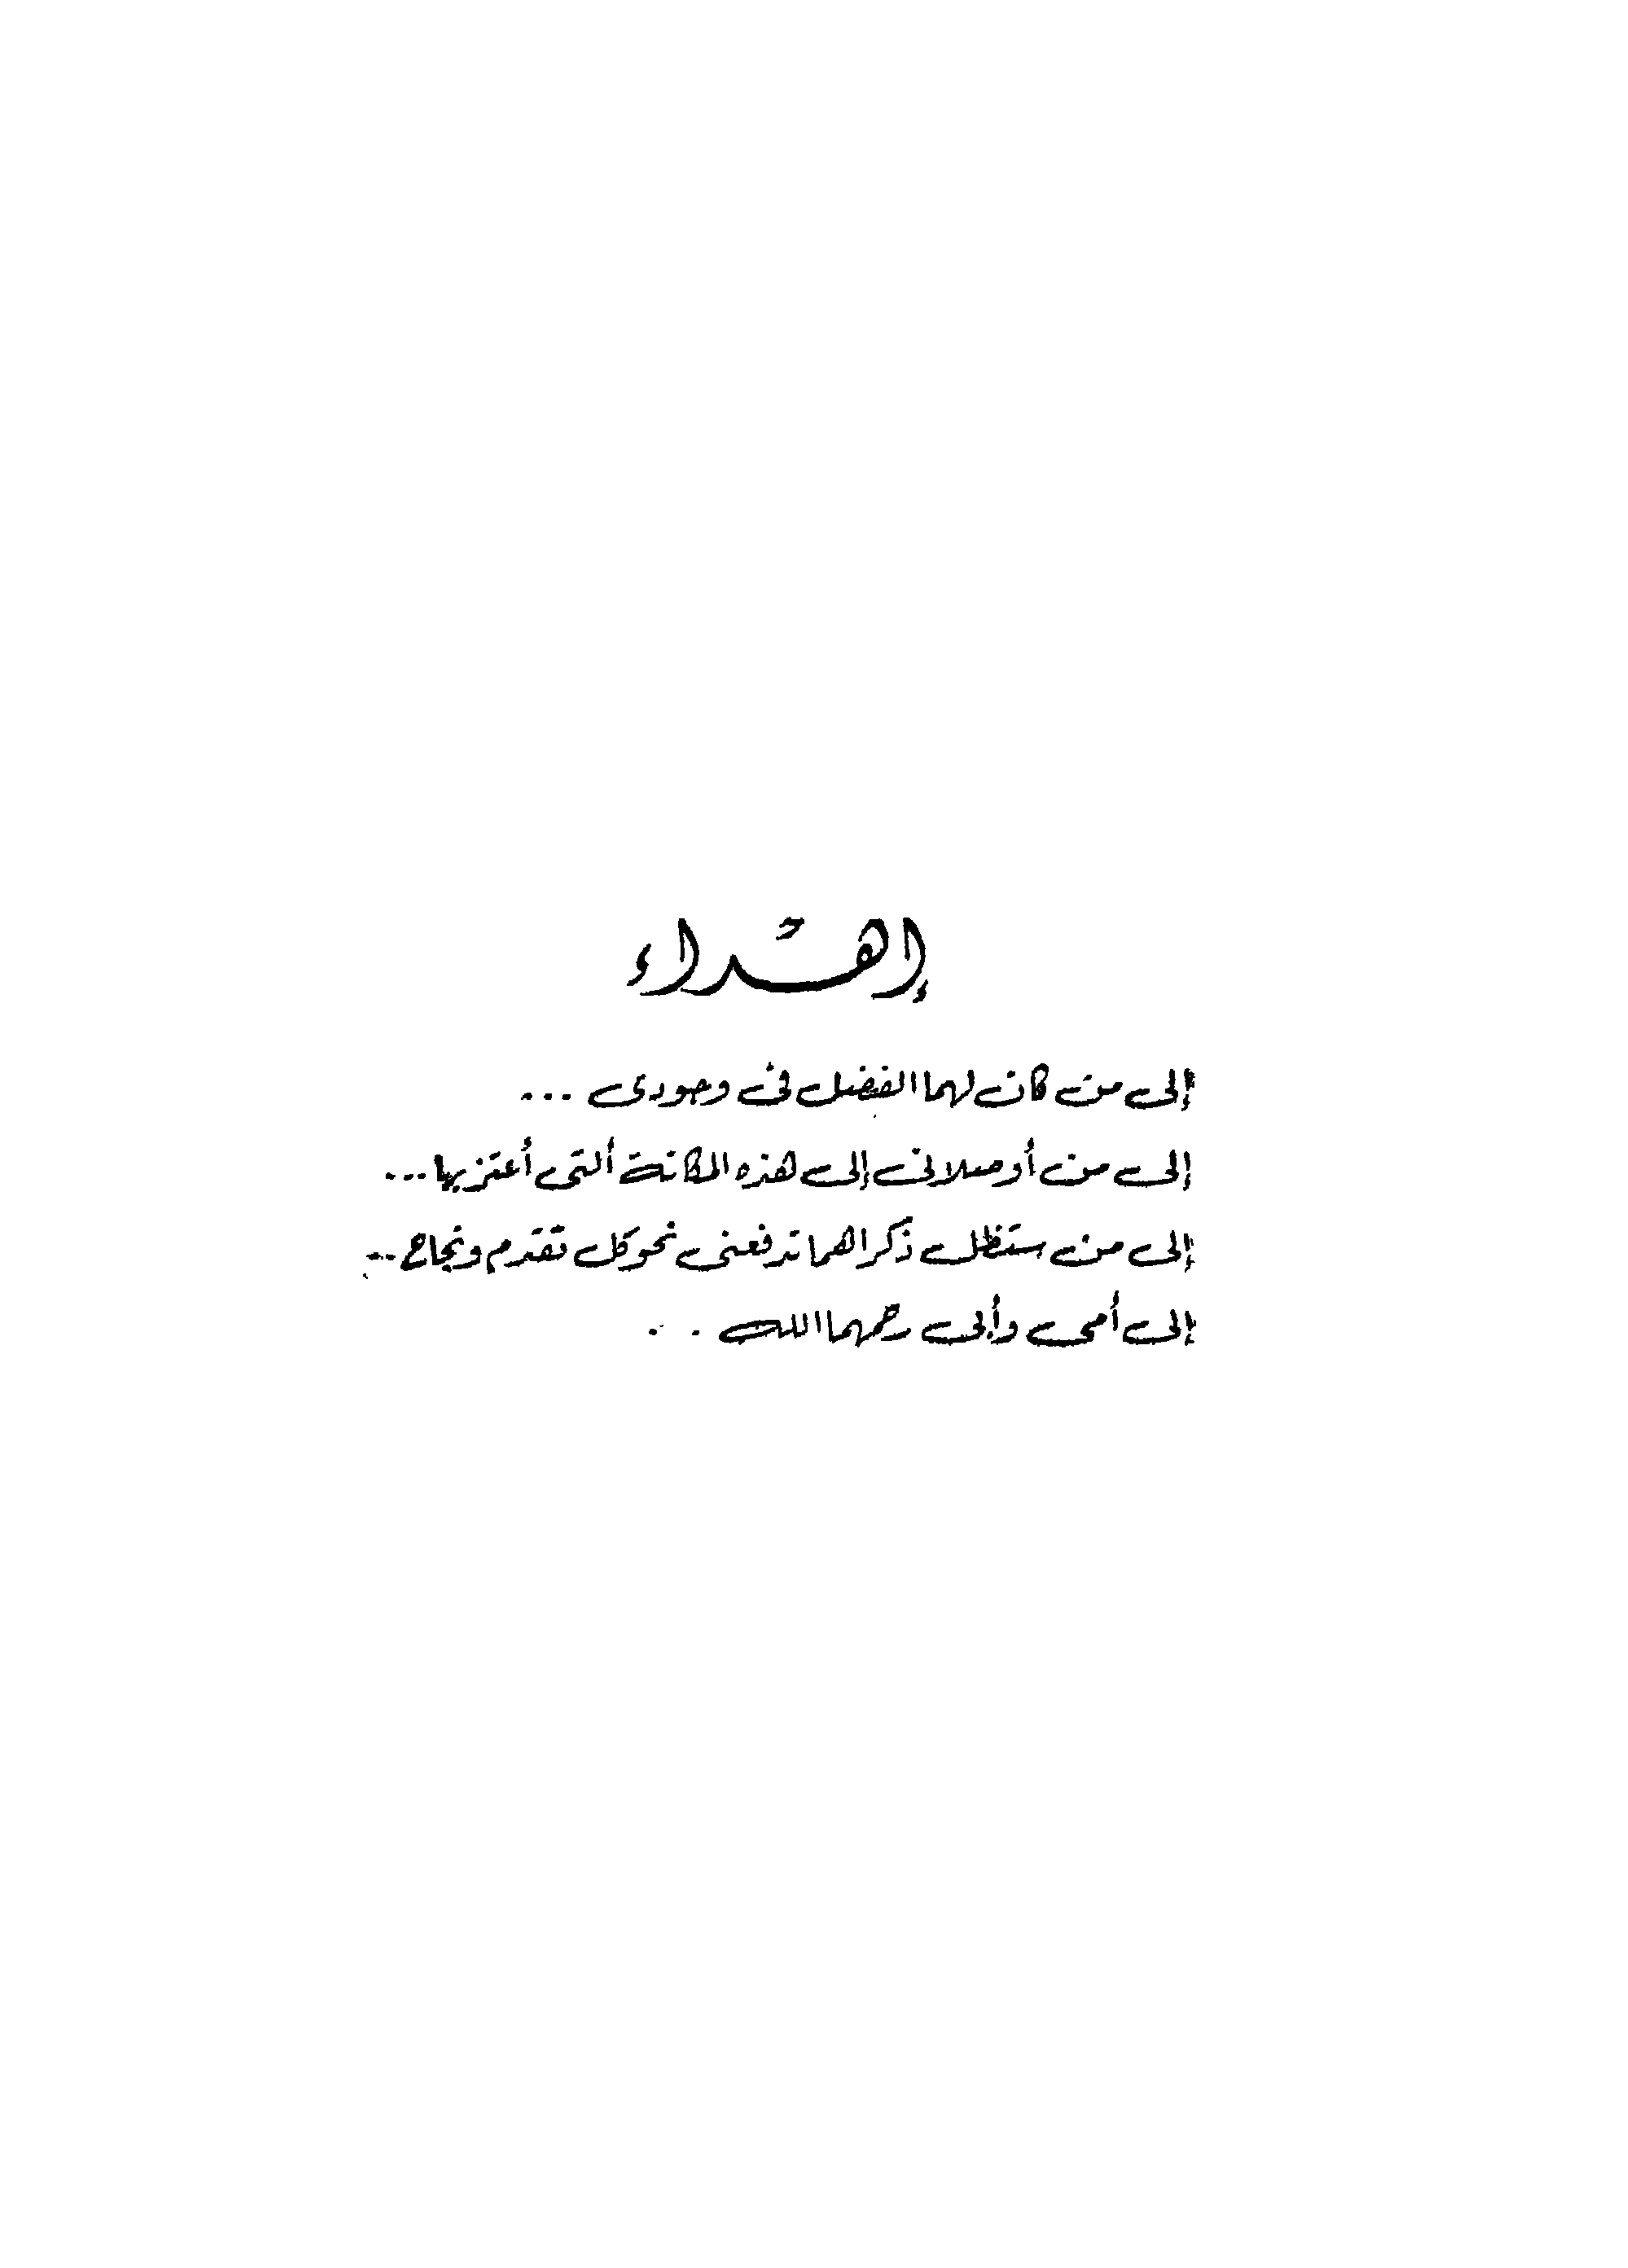 إهداء
إلى من كان لهما الفضل فى وجودى ...
إلى من أوصلانى إلى هذه المكانة ألتى أعتز بها ...
إلى من ستظل ذكراهما تدفعنى نحو كل تقدم ونجاح ..
إلى أمى وأبى رحمهما الله . .